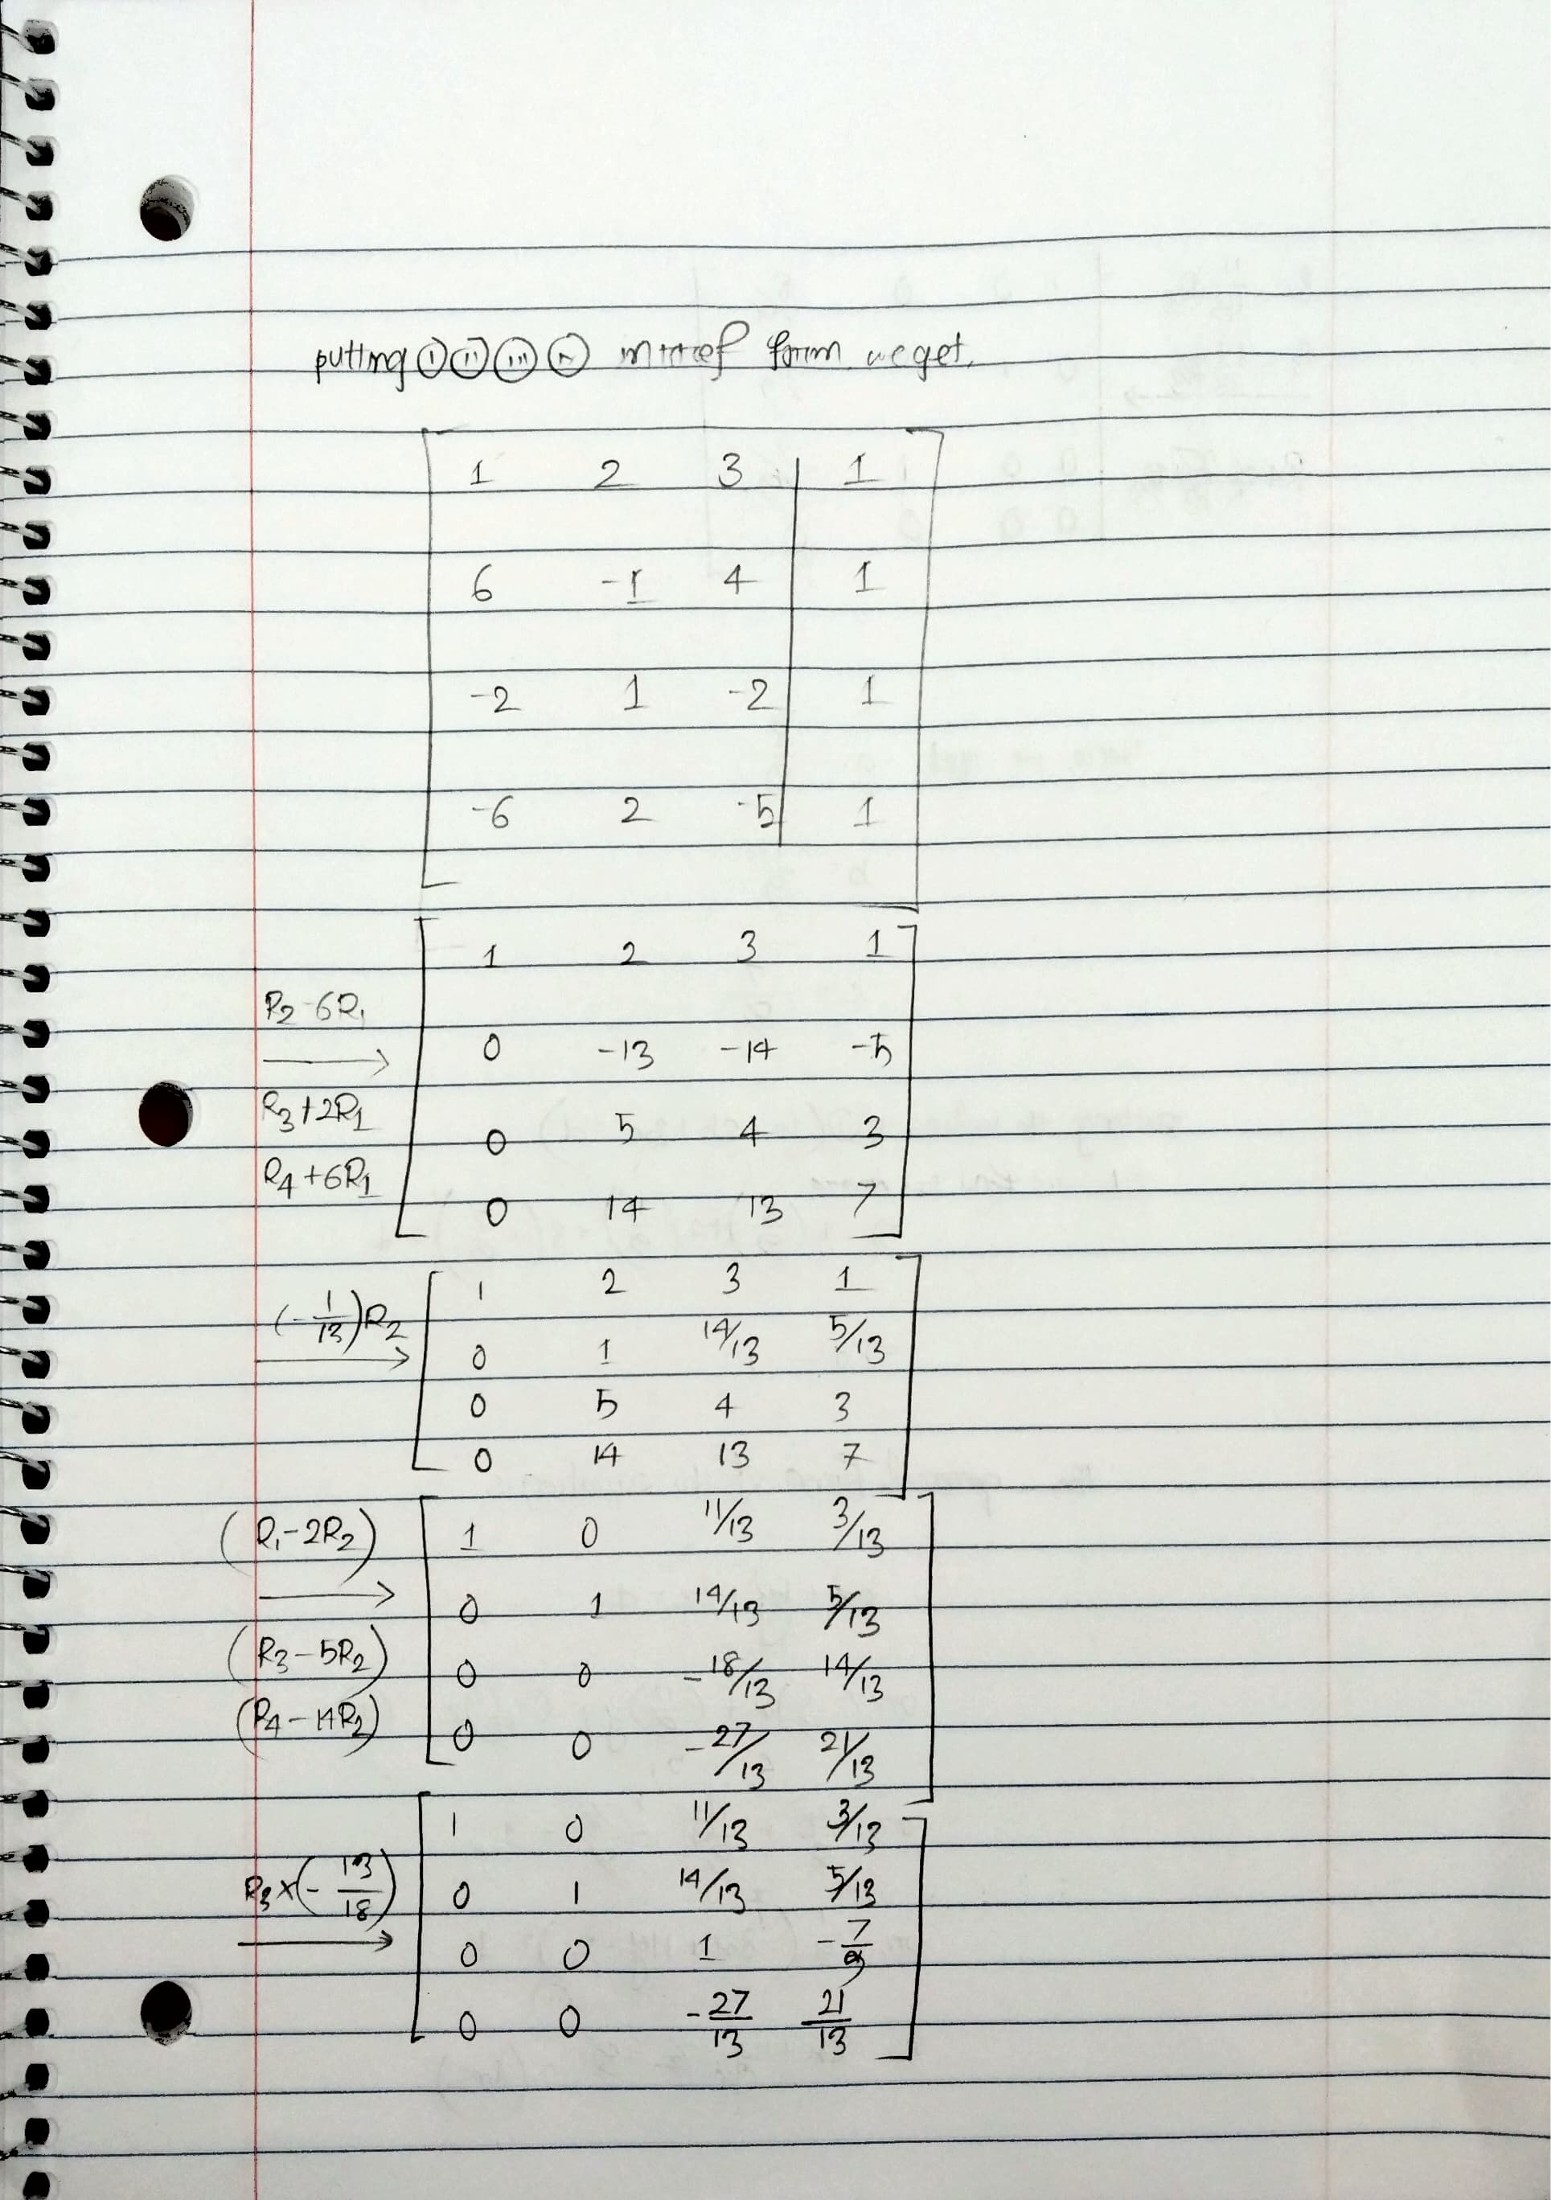 putting (i) (ii) (iii) (iv) in rref form we get.
1 2 3 | 1
6 -1 4 | 1
-2 1 -2 | 1
-6 2 -5 | 1
R2-6R1
R3+2R1
R4+6R1
1 2 3 1
0 -13 -14 -5
0 5 4 3
0 14 13 7
(-1/13)R2
1 2 3 1
0 1 14/13 5/13
0 5 4 3
0 14 13 7
(R1-2R2)
(R3-5R2)
(R4-14R2)
1 0 11/13 3/13
0 1 14/13 5/13
0 0 -18/13 14/13
0 0 -27/13 21/13
R3×(-13/18)
1 0 11/13 3/13
0 1 14/13 5/13
0 0 1 -7/9
0 0 -27/13 21/13